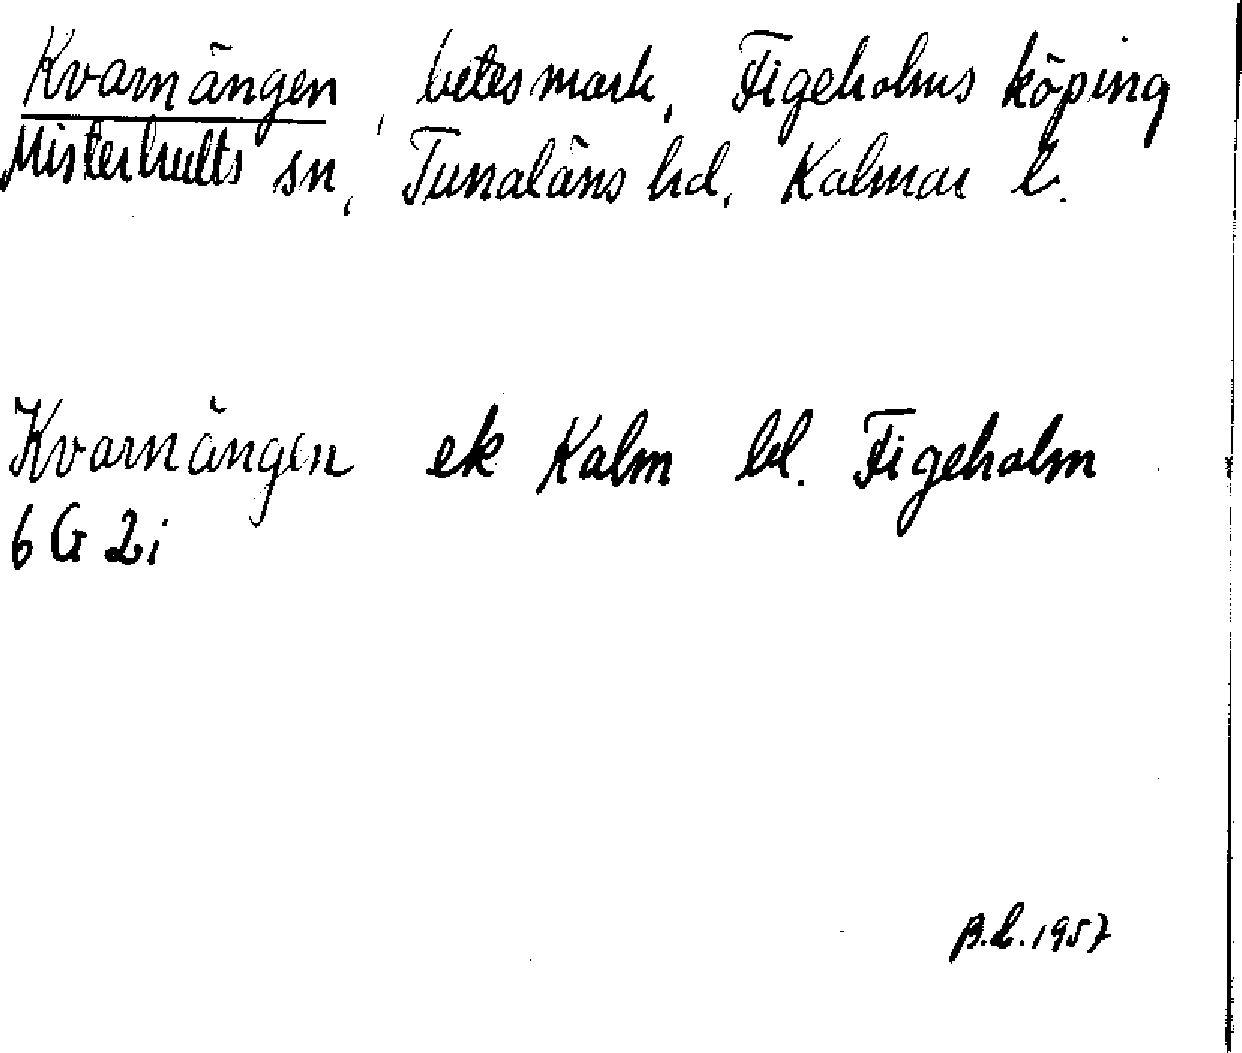 Kvarnängen, betesmark, Figeholms köping
Misterhults sn, Tunaläns hd, Kalmar l.
Kvarnängen ek Kalm bl. Figeholm
6 G 2i
B.L. 1957